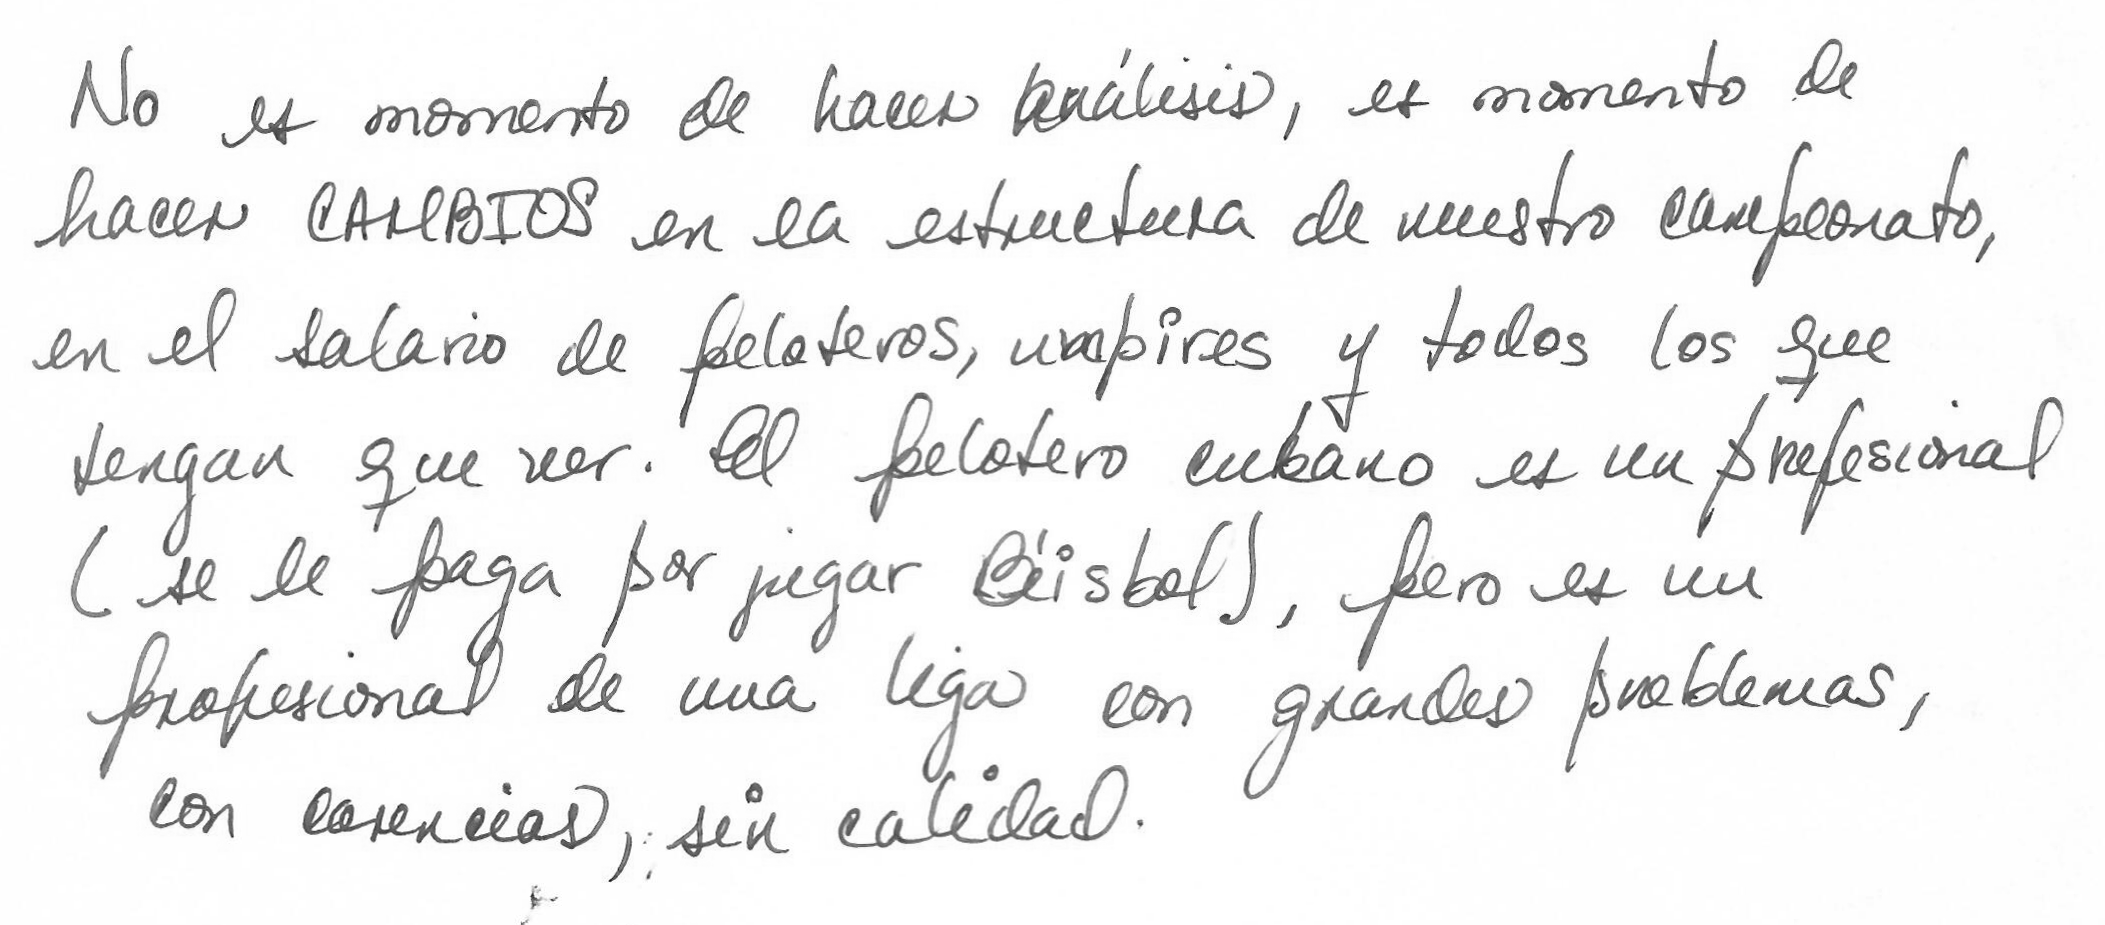 No es momento de hacer análisis, es momento de
hacer CAMBIOS en la estructura de nuestro campeonato,
en el salario de peloteros, umpires y todos los que
tengan que ver. El pelotero cubano es un profesional
(se le paga por jugar Béisbol), pero es un
profesional de una liga con grandes problemas,
con carencias, sin calidad.